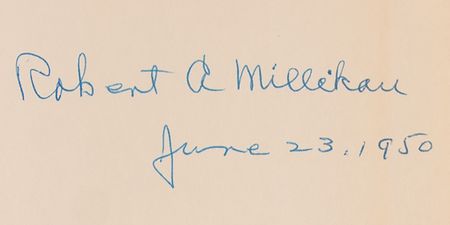 Robert A Millikan
June 23. 1950